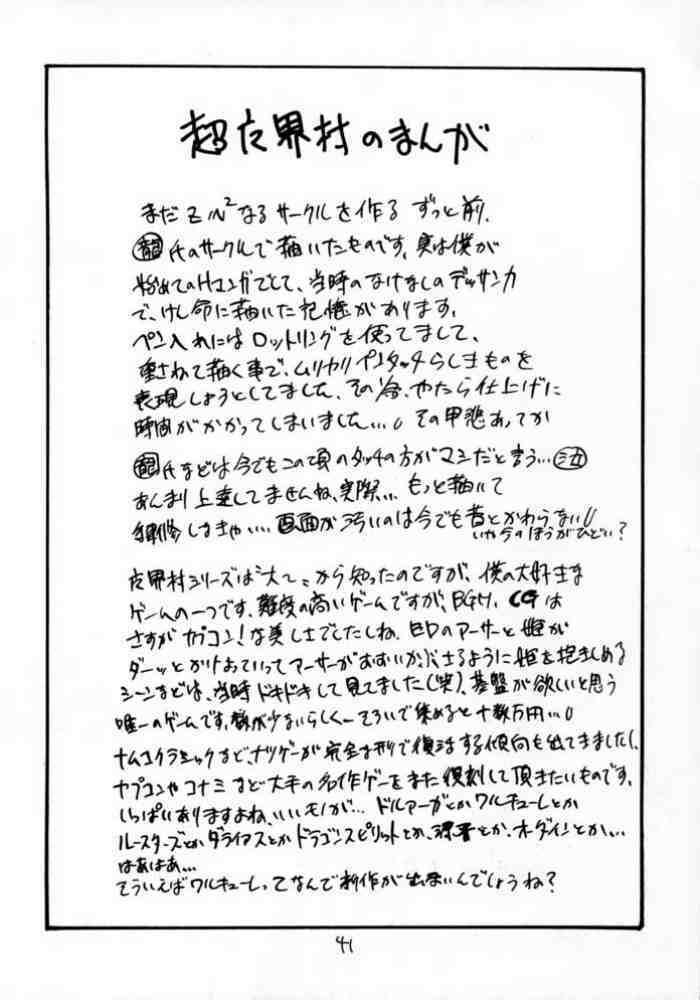 超魔界村のまんが
まだZN²なるサークルを作るずっと前、
氏のサークルで描いたものです。実は僕が
始めてのHマンガでして、当時のなけなしのデッサン力
で、けん命に描いた記憶があります。
ペン入れにはロットリングを使ってまして、
重ねて描く事で、ムリヤリペンタッチらしきものを
表現しようとしてました。その分、やたら仕上げに
時間がかかってしまいました…。その甲斐あってか
氏などは今でもこの頃のタッチの方がマシだと言う…
あんまり上達してませんね、実際… もっと描いて
修しなきゃ…。画面が汚いのは今でも昔とかわらない
いや今のほうがひどい?
魔界村シリーズは"大"から知ったのですが、僕の大好きな
ゲームの一つです。難度の高いゲームですが、BGM、CGは
さすがカプコン!な美しさでしたしね。EDのアーサーと姫が
ダーッとかけよっていってアーサーがおおいかぶさるように姫を抱きしめる
シーンなどは、当時ドキドキして見てました(笑)。基盤が欲しいと思う
唯一のゲームです。数が少ないらしく、そろいで集めると十数万円…
ナムコクラシックなど、ナツゲーが完全な形で復活する傾向も出てきましたし、
カプコンやコナミなど大手の名作ゲーをまた復刻して頂きたいものです。
いっぱいありますよね、いいモノが… ドルアーガとかワルキューレとか
ルースターズとかダライアスとかドラゴンスピリットとか、源平とか、オーダインとか…
はあはあ…
そういえばワルキューレってなんで新作が出ないんでしょうね?
41